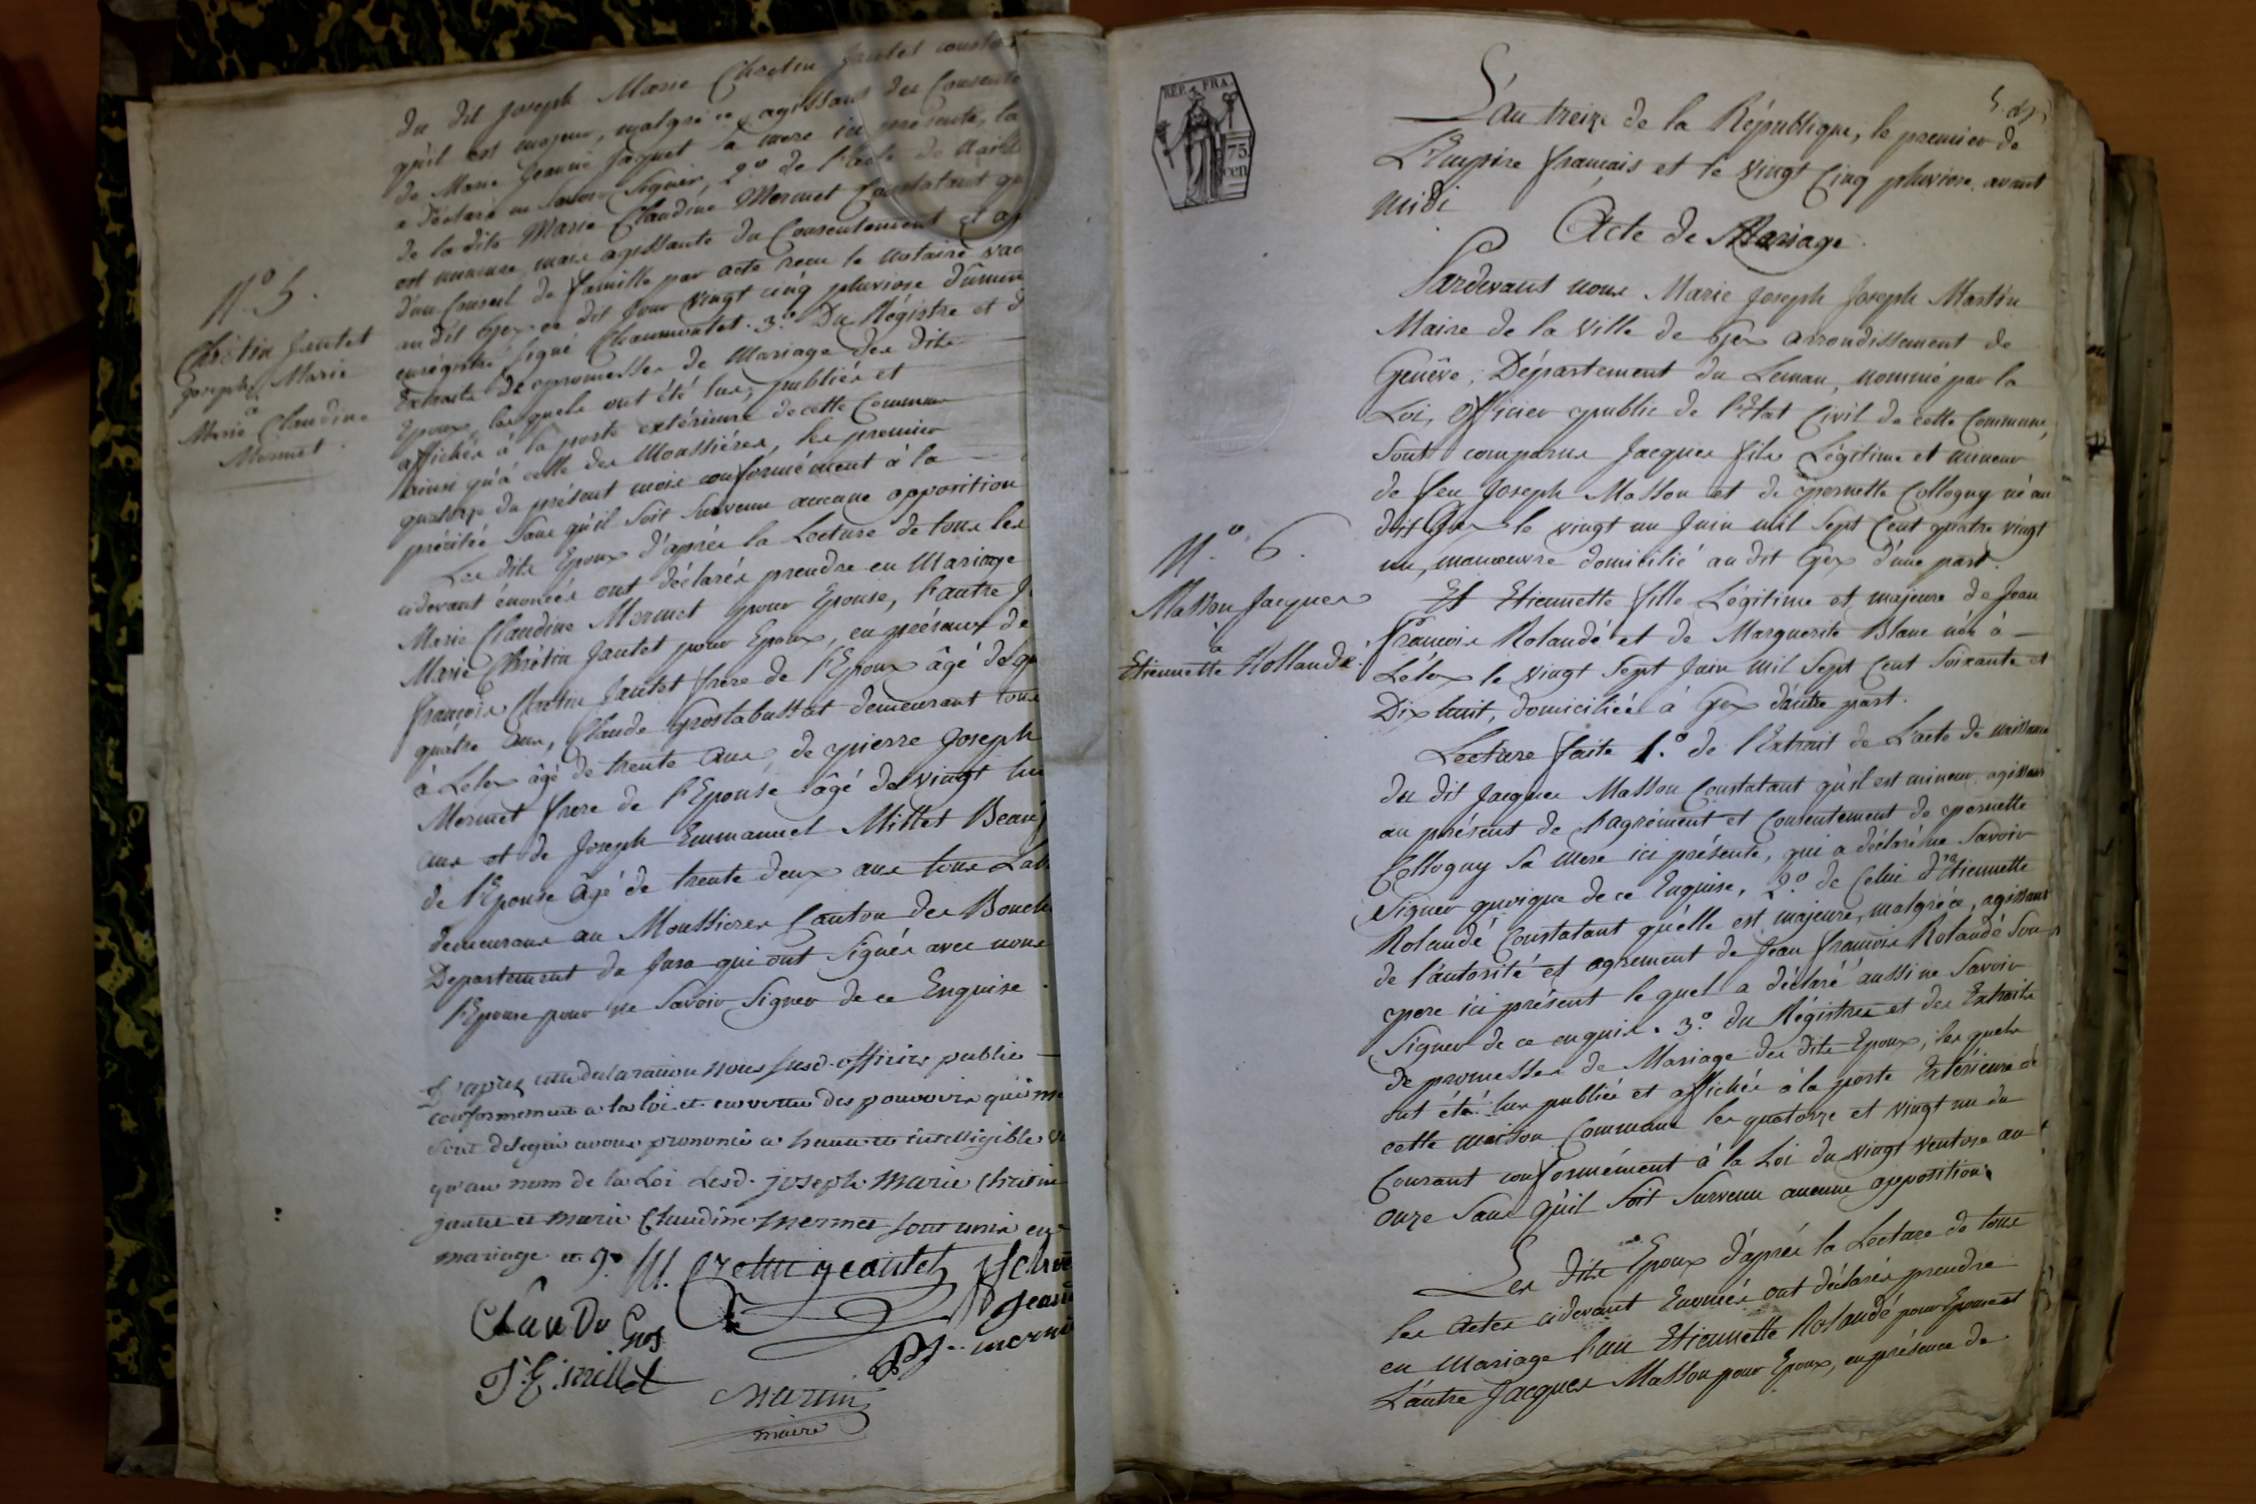 du dit Joseph Marie Chretin Jantet constat
qu'il est majeur, malgré ce agissant du Consente
de Marie Jeanne Jaquet sa mere ici présente, la
a déclaré ne savoir Signer, 2.º de l'acte de naiss
de la dite Marie Claudine Mermet Constatant qu
est mineure, mais agissante du Consentement et a
d'un Conseil de famille par acte reçu le notaire
au dit Gex ce dit Jour vingt cinq pluviose dûment
enrégistré signé Chaumontet. 3.º Du Régistre et d
Extraits de promesses de mariage des dits
Epoux, lesquels ont été lus, publiés et
affichés à la porte extérieure de cette Commune
ainsi qu'à celle des Moussières, les premier
quatorze du présent mois conformément à la
précitée Sans qu'il soit Survenu aucune opposition
N.º 5.
Chrétin Jantet
Joseph Marie
a
Marie Claudine
Mermet.
Les dits Epoux d'après la Lecture de tous les
cidevant énoncés ont déclarés prendre en Mariage
Marie Claudine Mermet pour Epouse, l'autre J
Marie Chrétin Jantet pour Epoux, en présence de
françois Chretin Jantet frère de l'Epoux âgé de qu
quatre ans, Claude Grostabussiat demeurant tous
à Lelex âgé de trente ans, de pierre Joseph
Mermet frere de l'Epouse âgé de vingt hu
ans et de Joseph Emmanuel Millet Beau f
de l'Epouse âgé de trente deux ans tous Lab
demeurans au Moussieres Canton des Bouch
Departement du Jura qui ont Signés avec nous
l'Epouse pour ne Savoir Signer de ce Enquise.
D'après cette declaration nous susd. officier public
conformement a la loi et en vertu des pouvoirs qui m
sont delegués avons prononcé a haute et intelligible v
qu'au nom de la Loi Lesd. joseph marie Chretin
jantet et marie Claudine mermet sont unis en
mariage et
M. Cretin jeantet
Claude Gros
J. E. millet
martin
maire
REP. FRA.
75
cen
L'an treize de la République, le premier de
L'Empire français et le vingt Cinq pluviose avant
midi
Acte de Mariage.
Pardevant nous Marie Joseph Joseph Martin
Maire de la Ville de Gex arrondissement de
Genêve, Département du Leman, nommé par la
Loi, Officier public de l'Etat Civil de cette Commune,
Sont comparus Jacques fils Légitime et mineur
de feu Joseph Masson et de pernette Collogny né au
dit Gex le vingt un Juin mil Sept Cent quatre vingt
un, manoeuvre domicilié au dit Gex d'une part.
N.º 6.
Masson Jacques
a
Etiennette Rollandé.
Et Etiennette fille Légitime et majeure de Jean
françois Rolandé et de Marguerite Blanc née à
Lélex le vingt Sept Juin mil Sept Cent Soixante et
Dix huit, domiciliée à Gex d'autre part.
Lecture faite 1.º de l'Extrait de L'acte de naissance
du dit Jacques Masson Constatant qu'il est mineur, agissant
au présent de l'agrément et Consentement de pernette
Collogny Sa Mere ici présente, qui a déclaré ne Savoir
Signer quoique de ce Enquise, 2.º de Celui d'Etiennette
Rolandé Constatant qu'elle est majeure, malgré ce, agissant
de l'autorité et agrement de Jean françois Rolandé Son
pere ici présent lequel a déclaré aussi ne Savoir
Signer de ce enquis. 3.º du Régistres et des Extraits
de promesses de Mariage des dits Epoux, les quels
ont été lus publiés et affichés à la porte Extérieure de
cette maison Commune les quatorze et vingt un du
Courant conformément à la Loi du vingt ventose an
onze Sans qu'il Soit Survenu aucune opposition.
Les dits Epoux d'après la Lecture de tous
les actes cidevant Enoncés ont déclarés prendre
en Mariage l'un Etiennette Rolandé pour Epouse et
L'autre Jacques Masson pour Epoux, en présence de